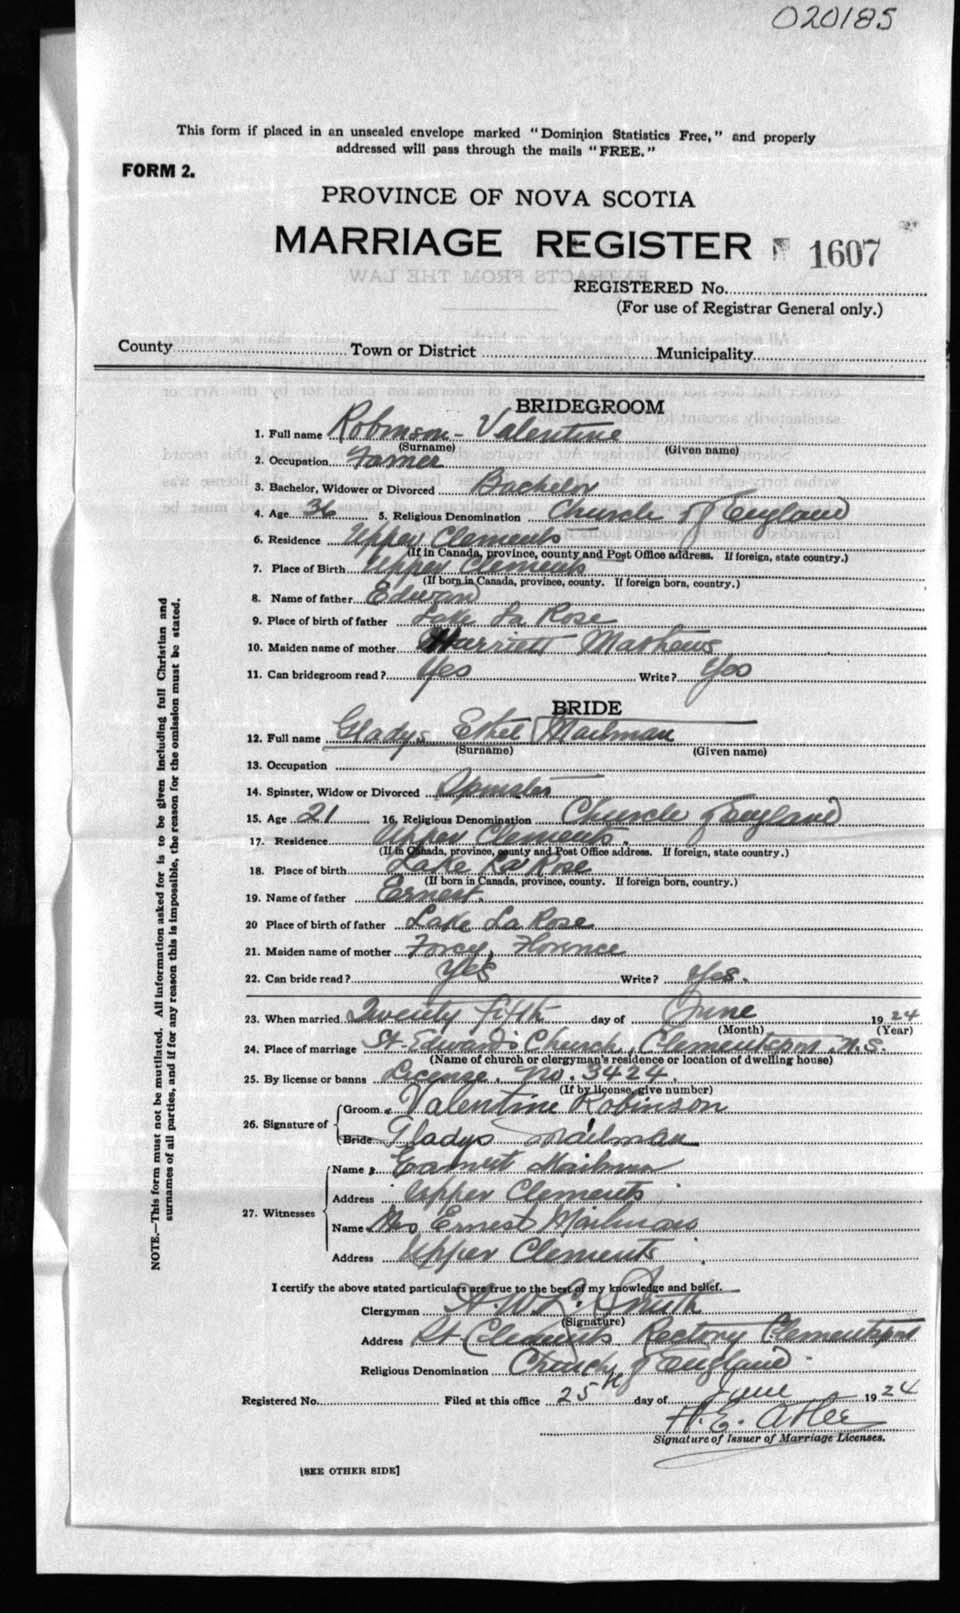 020185
This form if placed in an unsealed envelope marked "Dominion Statistics Free," and properly
addressed will pass through the mails "FREE."
FORM 2.
PROVINCE OF NOVA SCOTIA
MARRIAGE REGISTER 1607
REGISTERED No.
(For use of Registrar General only.)
County Town or District Municipality
BRIDEGROOM
1. Full name Robinson - Valentine
(Surname) (Given name)
2. Occupation Farmer
3. Bachelor, Widower or Divorced Bachelor
4. Age 36 5. Religious Denomination Church of England
6. Residence Upper Clements
(If in Canada, province, county and Post Office address. If foreign, state country.)
7. Place of Birth Upper Clements
(If born in Canada, province, county. If foreign born, country.)
8. Name of father Edward
9. Place of birth of father Lake La Rose
10. Maiden name of mother Harriett Mathews
11. Can bridegroom read? Yes Write? Yes
BRIDE
12. Full name Gladys Ethel Mailman
(Surname) (Given name)
13. Occupation
14. Spinster, Widow or Divorced Spinster
15. Age 21 16. Religious Denomination Church of England
17. Residence Upper Clements.
(If in Canada, province, county and Post Office address. If foreign, state country.)
18. Place of birth Lake La Rose
(If born in Canada, province, county. If foreign born, country.)
19. Name of father Ernest.
20 Place of birth of father Lake La Rose
21. Maiden name of mother Florence
22. Can bride read? Yes Write? Yes.
23. When married Twenty fifth day of June 1924
(Month) (Year)
24. Place of marriage St. Edward's Church, Clementsport N.S.
(Name of church or clergyman's residence or location of dwelling house)
25. By license or banns License. No. 3424
(If by license, give number)
26. Signature of
Groom Valentine Robinson
Bride Gladys Mailman
27. Witnesses
Name Earnest Mailman
Address Upper Clements
Name Mrs Ernest Mailman
Address Upper Clements
I certify the above stated particulars are true to the best of my knowledge and belief.
Clergyman A. W. L. Smith
(Signature)
Address St. Clements Rectory Clementsport
Religious Denomination Church of England
Registered No. Filed at this office 25th day of June 1924
H. E. Atlee
Signature of Issuer of Marriage Licenses.
[SEE OTHER SIDE]
NOTE.—This form must not be mutilated. All information asked for is to be given including full Christian and
surnames of all parties, and if for any reason this is impossible, the reason for the omission must be stated.